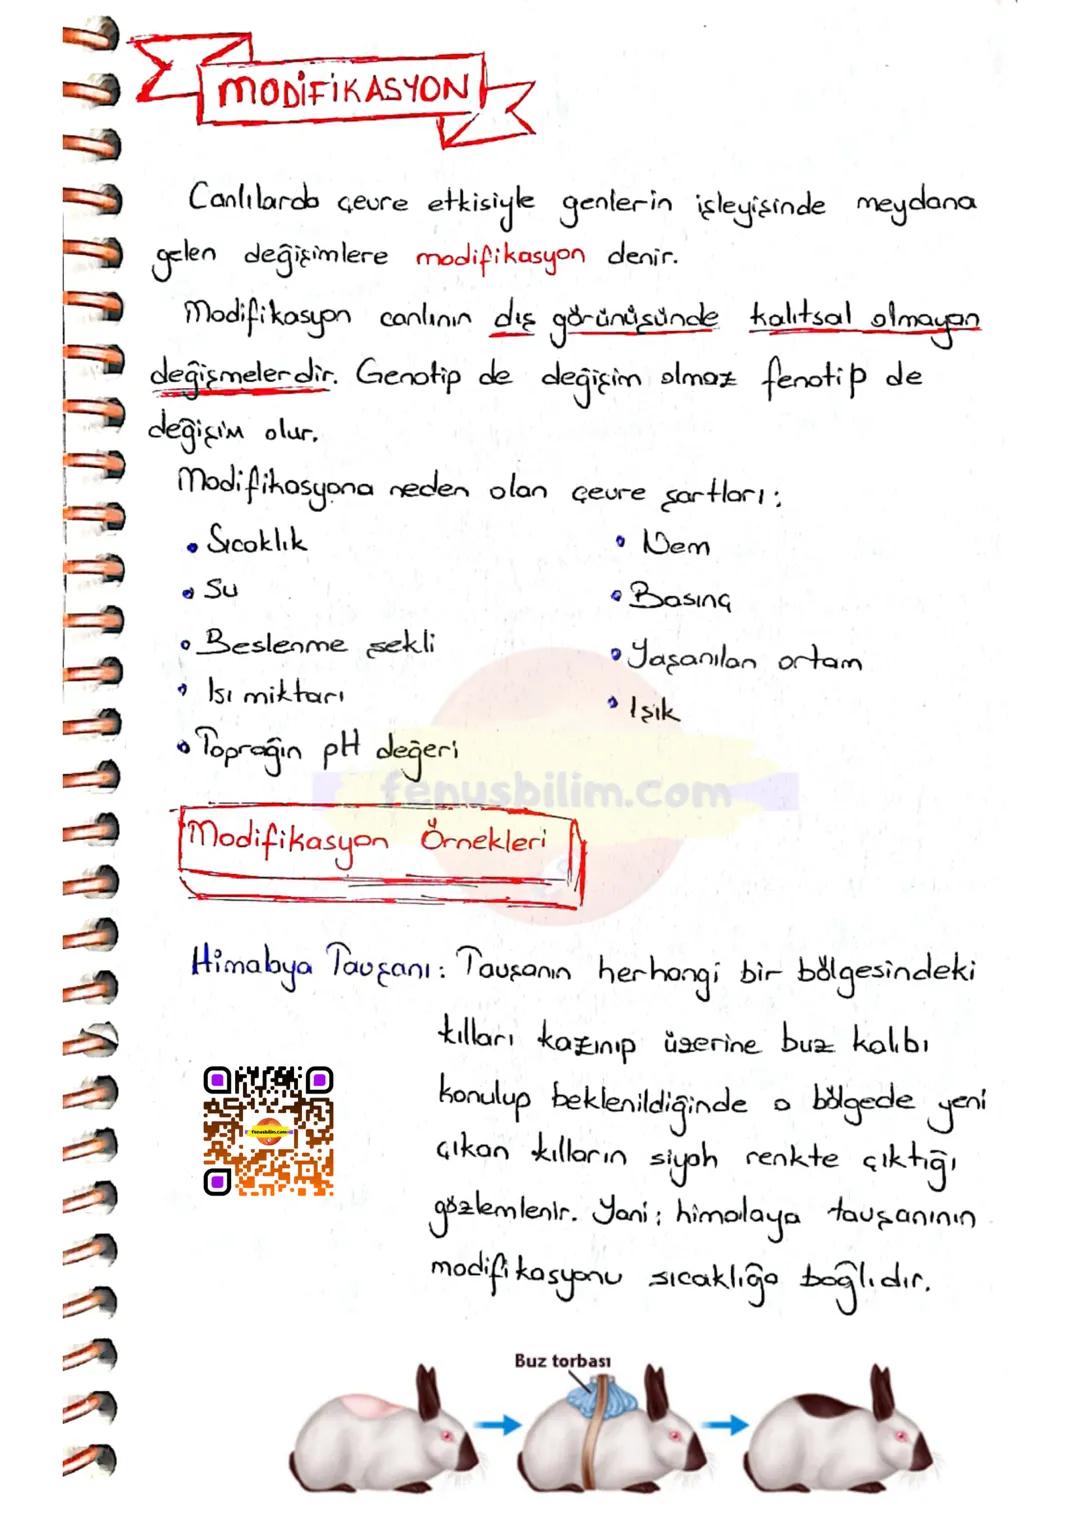 MODİFİKASYON
Canlılarda çevre etkisiyle genlerin işleyişinde meydana
gelen değişimlere modifikasyon denir.
Modifikasyon canlının dış görünüşünde kalıtsal olmayan
değişmelerdir. Genotip de değişim olmaz fenotip de
değişim olur.
Modifikasyona neden olan çevre şartları:
• Sıcaklık
• Su
• Beslenme şekli
• Isı miktarı
• Toprağın pH değeri
• Nem
• Basınç
• Yaşanılan ortam
• Işık
fenusbilim.com
Modifikasyon Örnekleri
Himalaya Tavşanı: Tavşanın herhangi bir bölgesindeki
kılları kazınıp üzerine buz kalıbı
konulup beklenildiğinde o bölgede yeni
çıkan kılların siyah renkte çıktığı
gözlemlenir. Yani; himalaya tavşanının
modifikasyonu sıcaklığa bağlıdır.
fenusbilim.com
Buz torbası